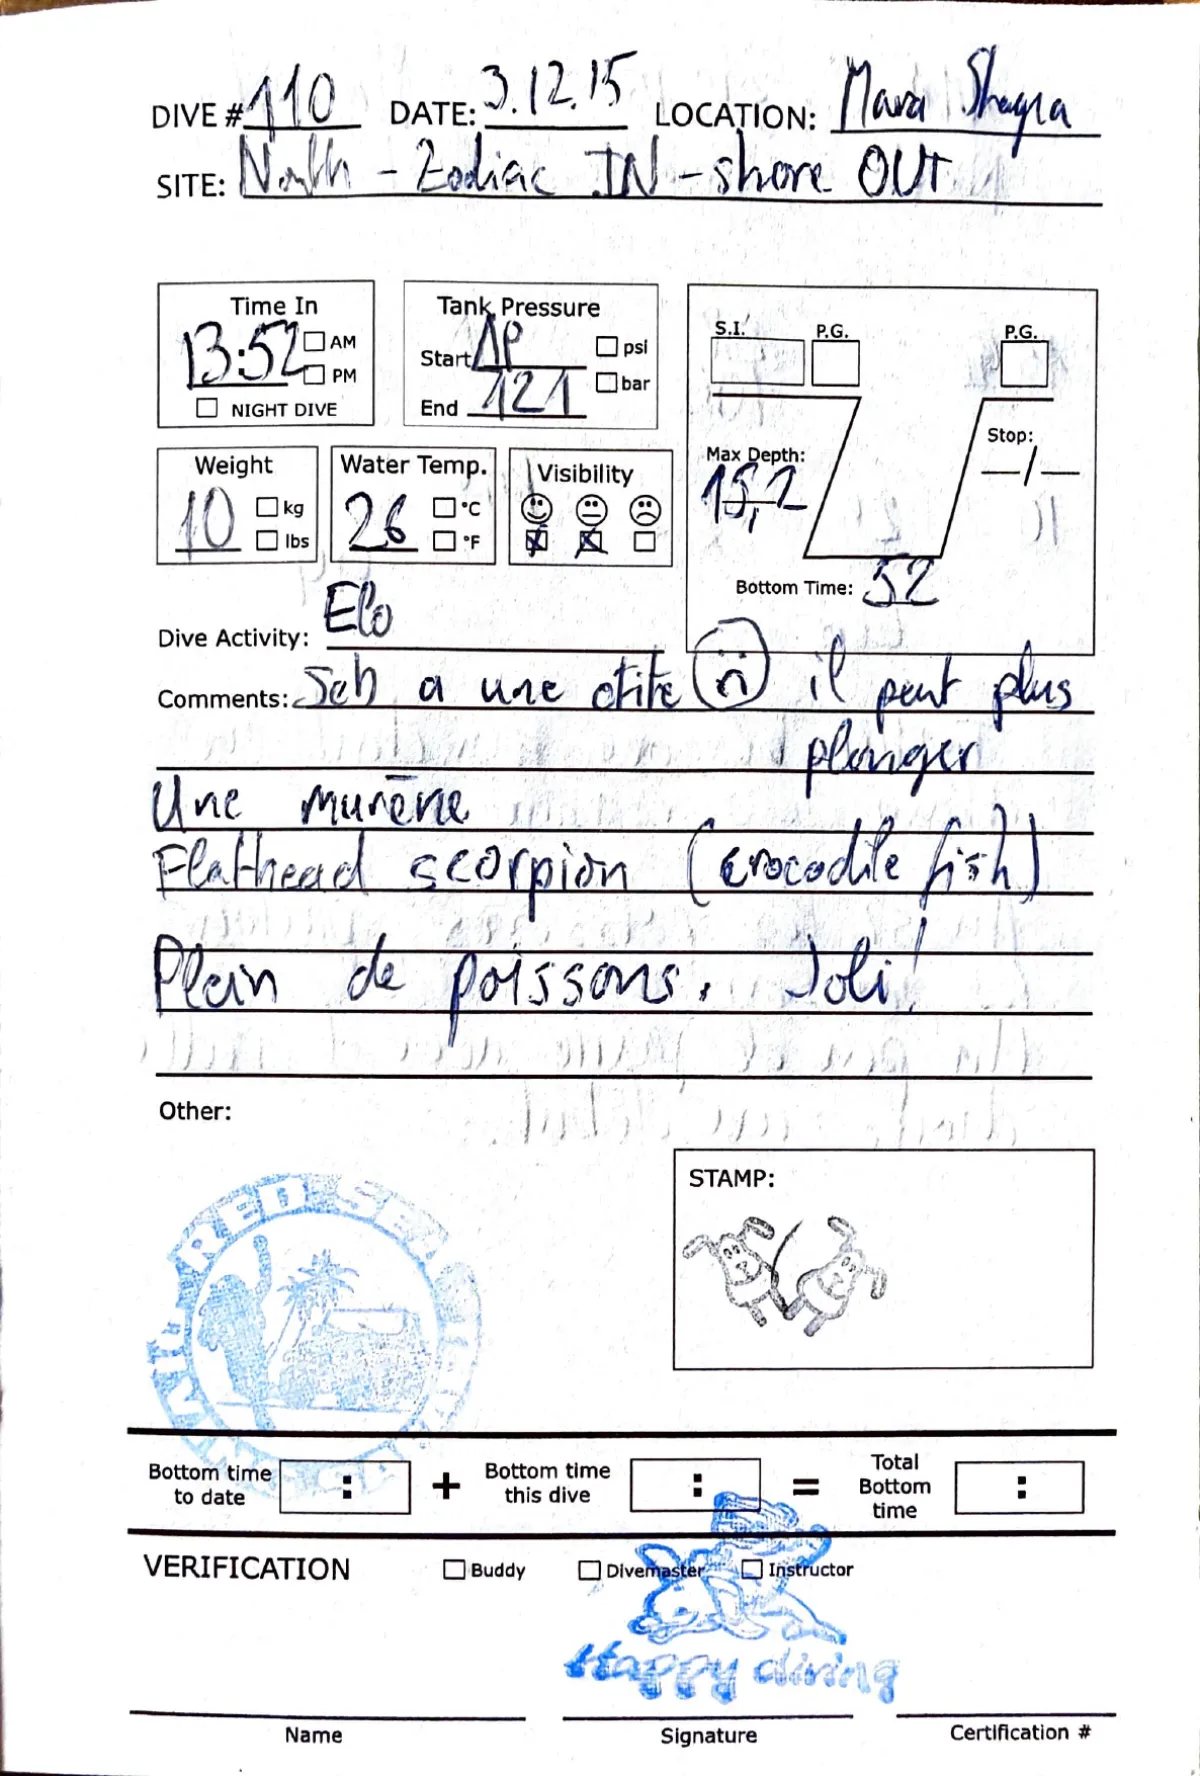 DIVE # 110 DATE: 3.12.15 LOCATION: Marsa Shagra
SITE: North - Zodiac IN - shore OUT
Time In
13:52 AM
PM
NIGHT DIVE
Tank Pressure
Start Δp psi
End 121 bar
S.I. P.G. P.G.
Max Depth:
15,2
Stop:
/
Bottom Time: 52
Weight
10 kg
lbs
Water Temp.
26 °C
°F
Visibility
Dive Activity: Elo
Comments: Seb a une otite il peut plus
plonger
Une murène
Flathead scorpion (crocodile fish)
Plein de poissons. Joli!
Other:
STAMP:
RED SEA
Bottom time
to date : + Bottom time
this dive : = Total
Bottom
time :
VERIFICATION Buddy Divemaster Instructor
Happy diving
Name Signature Certification #